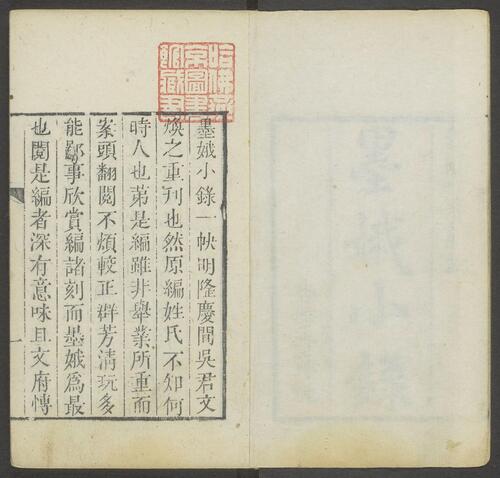 哈佛燕
京圖書
館藏
墨娥小錄一帙明隆慶間吳君文
煥之重刊也然原編姓氏不知何
時人也苐是編雖非舉業所重而
案頭翻閱不煩較正群芳清玩多
能鄙事欣賞編諸刻而墨娥爲最
也閱是編者深有意味且文府慱
一
墨娥小錄